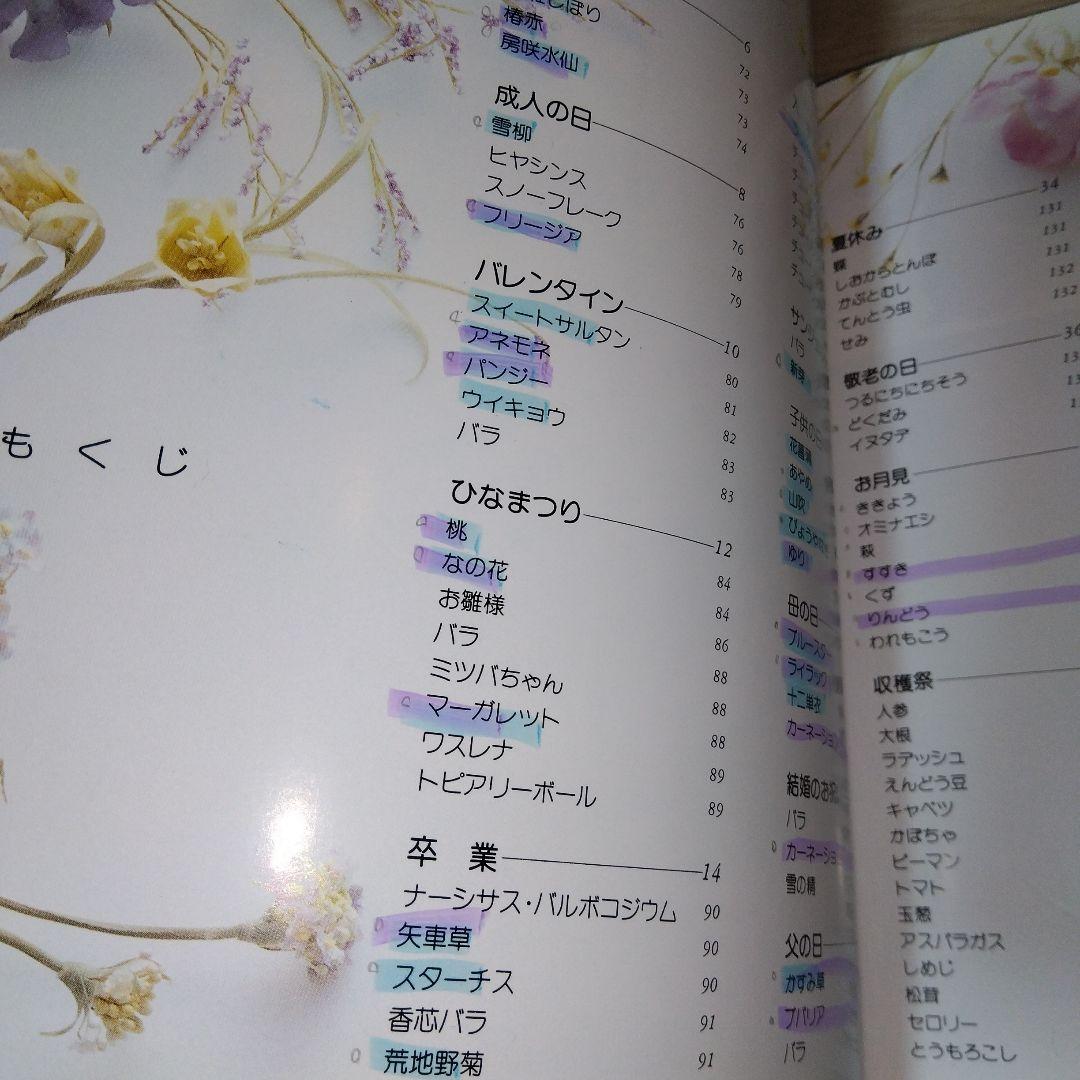 もくじ
椿赤
房咲水仙
6
72
73
73
74
成人の日 8
雪柳 76
ヒヤシンス 76
スノーフレーク 78
フリージア 79
バレンタイン 10
スイートサルタン 80
アネモネ 81
パンジー 82
ウイキョウ 83
バラ 83
ひなまつり 12
桃 84
なの花 84
お雛様 86
バラ 88
ミツバちゃん 88
マーガレット 88
ワスレナ 89
トピアリーボール 89
卒業 14
ナーシサス・バルボコジウム 90
矢車草 90
スターチス 90
香芯バラ 91
荒地野菊 91
バラ
新芽
子供の日
花菖蒲
あやめ
山吹
びょうやなぎ
ゆり
母の日
ブルースター
ライラック
十二単衣
カーネーション
結婚のお祝
バラ
カーネーショ
雪の精
父の日
かすみ草
ブバリア
バラ
夏休み 34
蝶 131
しおからとんぼ 131
かぶとむし 131
てんとう虫 132
せみ 132
敬老の日 36
つるにちにちそう
どくだみ
イヌタデ
お月見
ききょう
オミナエシ
萩
すすき
くず
りんどう
われもこう
収穫祭
人参
大根
ラデッシュ
えんどう豆
キャベツ
かぼちゃ
ピーマン
トマト
玉葱
アスパラガス
しめじ
松茸
セロリー
とうもろこし